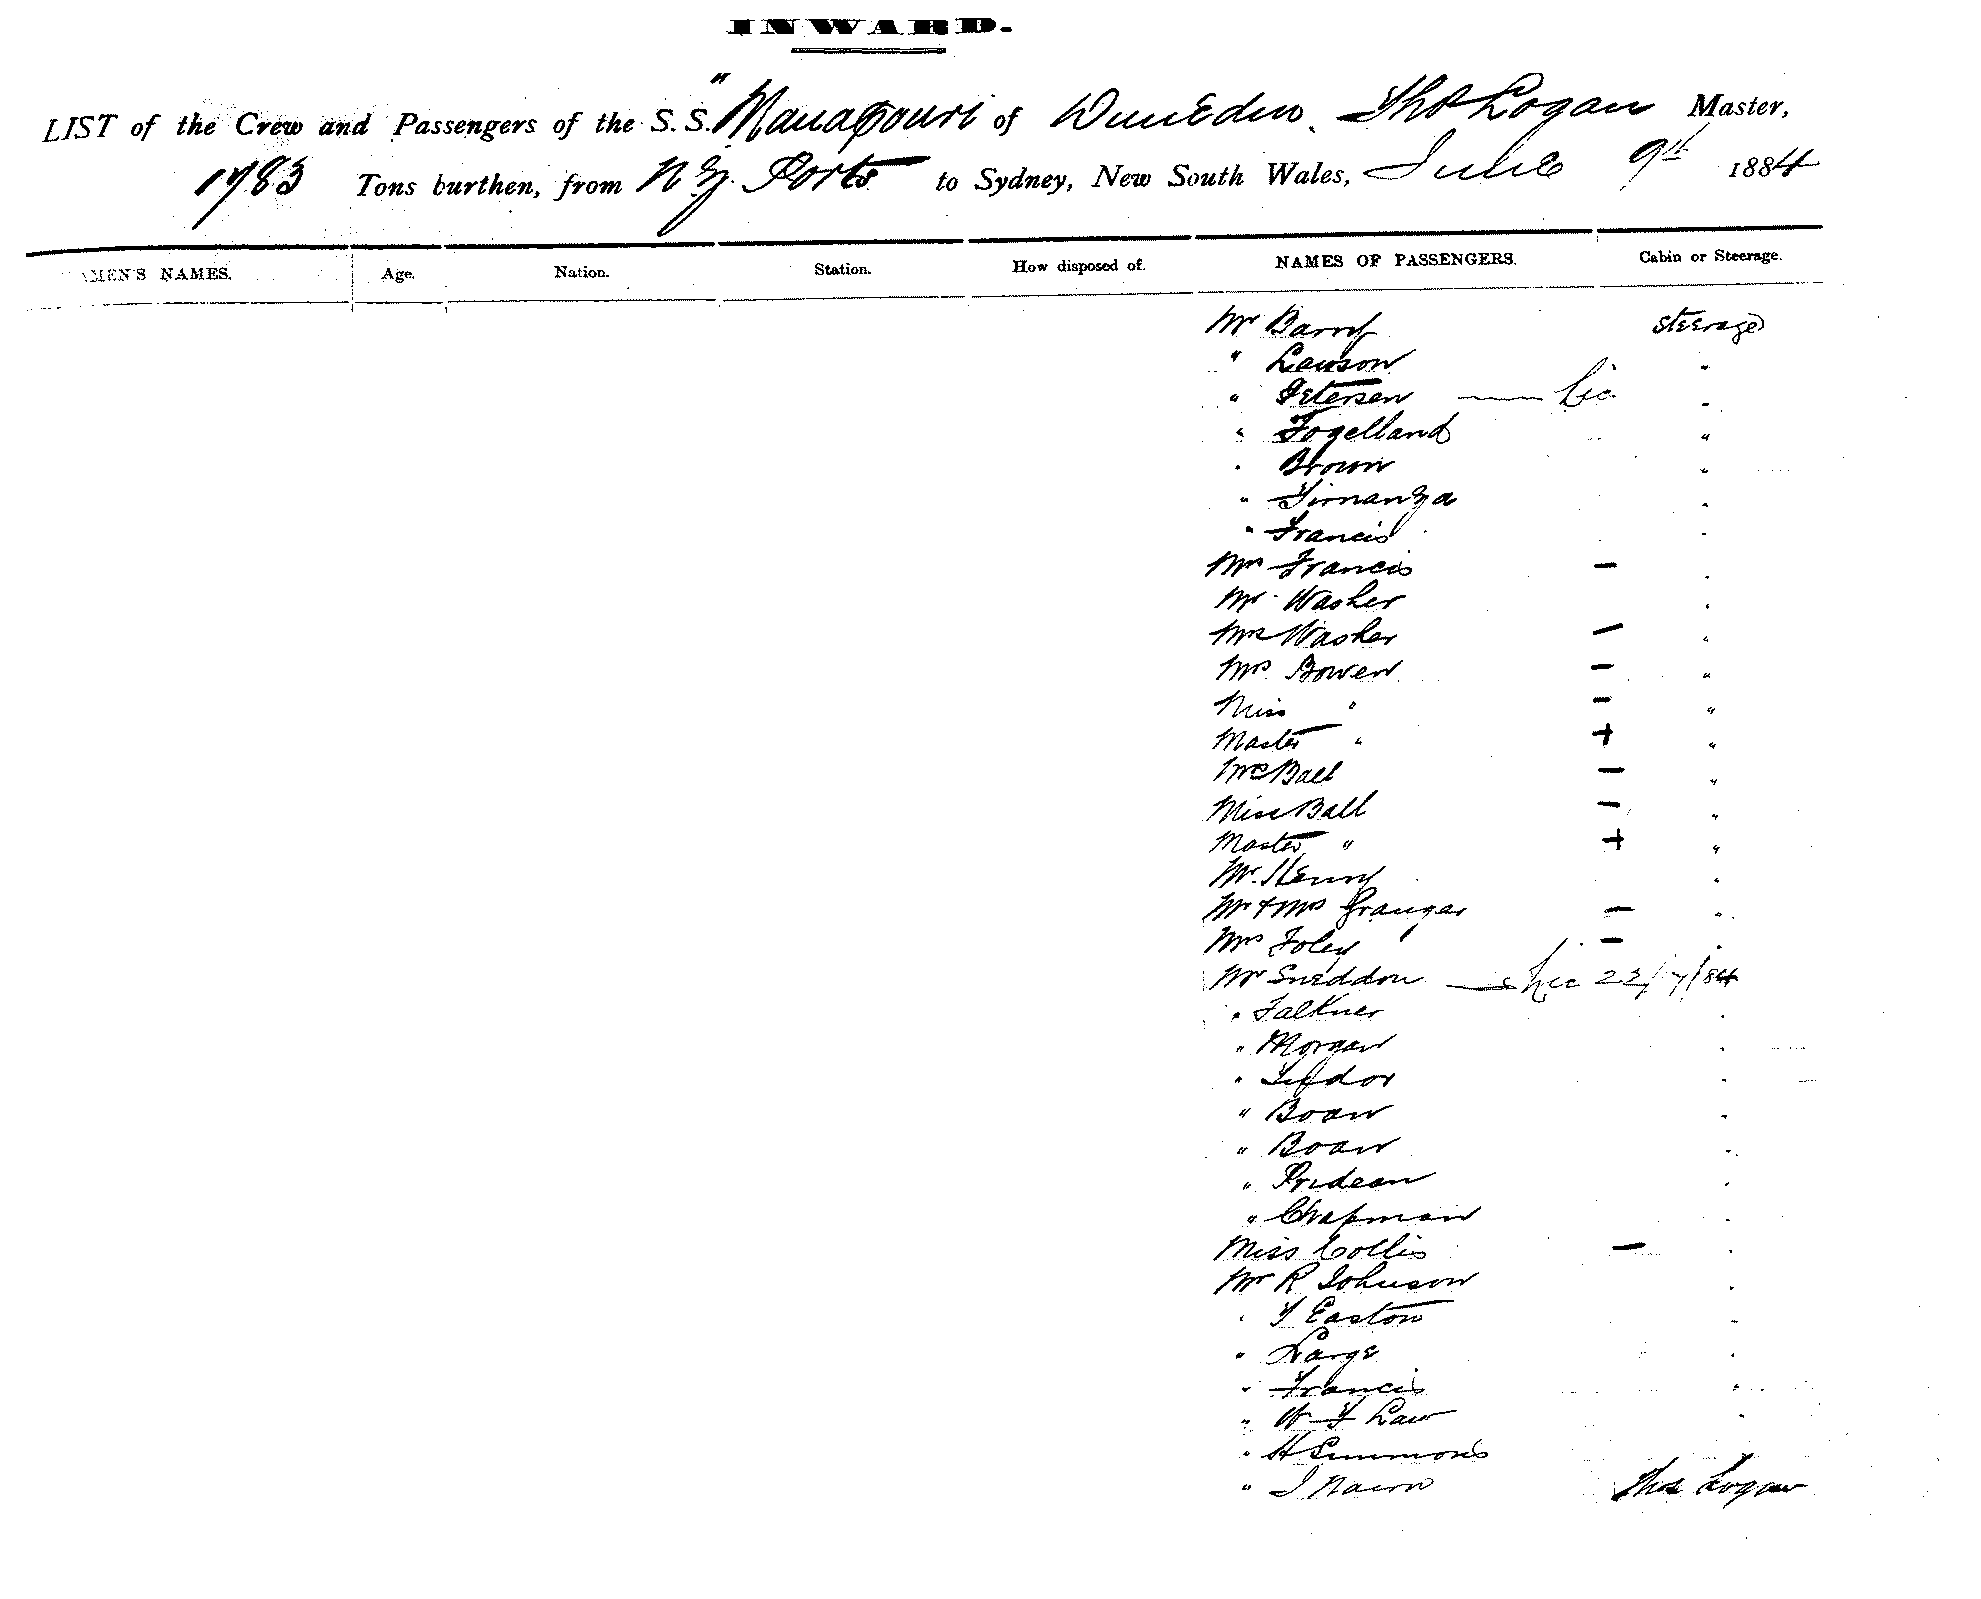 INWARD.
LIST of the Crew and Passengers of the S. S. "Manapouri of Dunedin Thos Logan Master,
1783 Tons burthen, from N Z. Ports to Sydney, New South Wales, June 9th 1884
AMEN'S NAMES. Age. Nation. Station. How disposed of. NAMES OF PASSENGERS. Cabin or Steerage.
Mr Barry steerage
" Lawson "
" Petersen — Lic "
" Fogelland "
" Brown "
" "
" Francis "
Mrs Francis — "
Mr Washer "
Mrs Washer — "
Mrs Bowen — "
Miss " — "
Master " + "
Mrs Ball — "
Miss Ball — "
Master " + "
Mr. Henry "
Mr & Mrs Grangar — "
Mrs Foley — "
Mr Sneddon — Lic 22/7/84
" Falkner "
" Morgan "
" "
" Boan "
" Boan "
" Pridean "
" Chapman "
Miss Collis — "
Mr R Johnson "
" Easton "
" Large "
" Francis "
" Law "
" H Simmons "
" Thos Logan